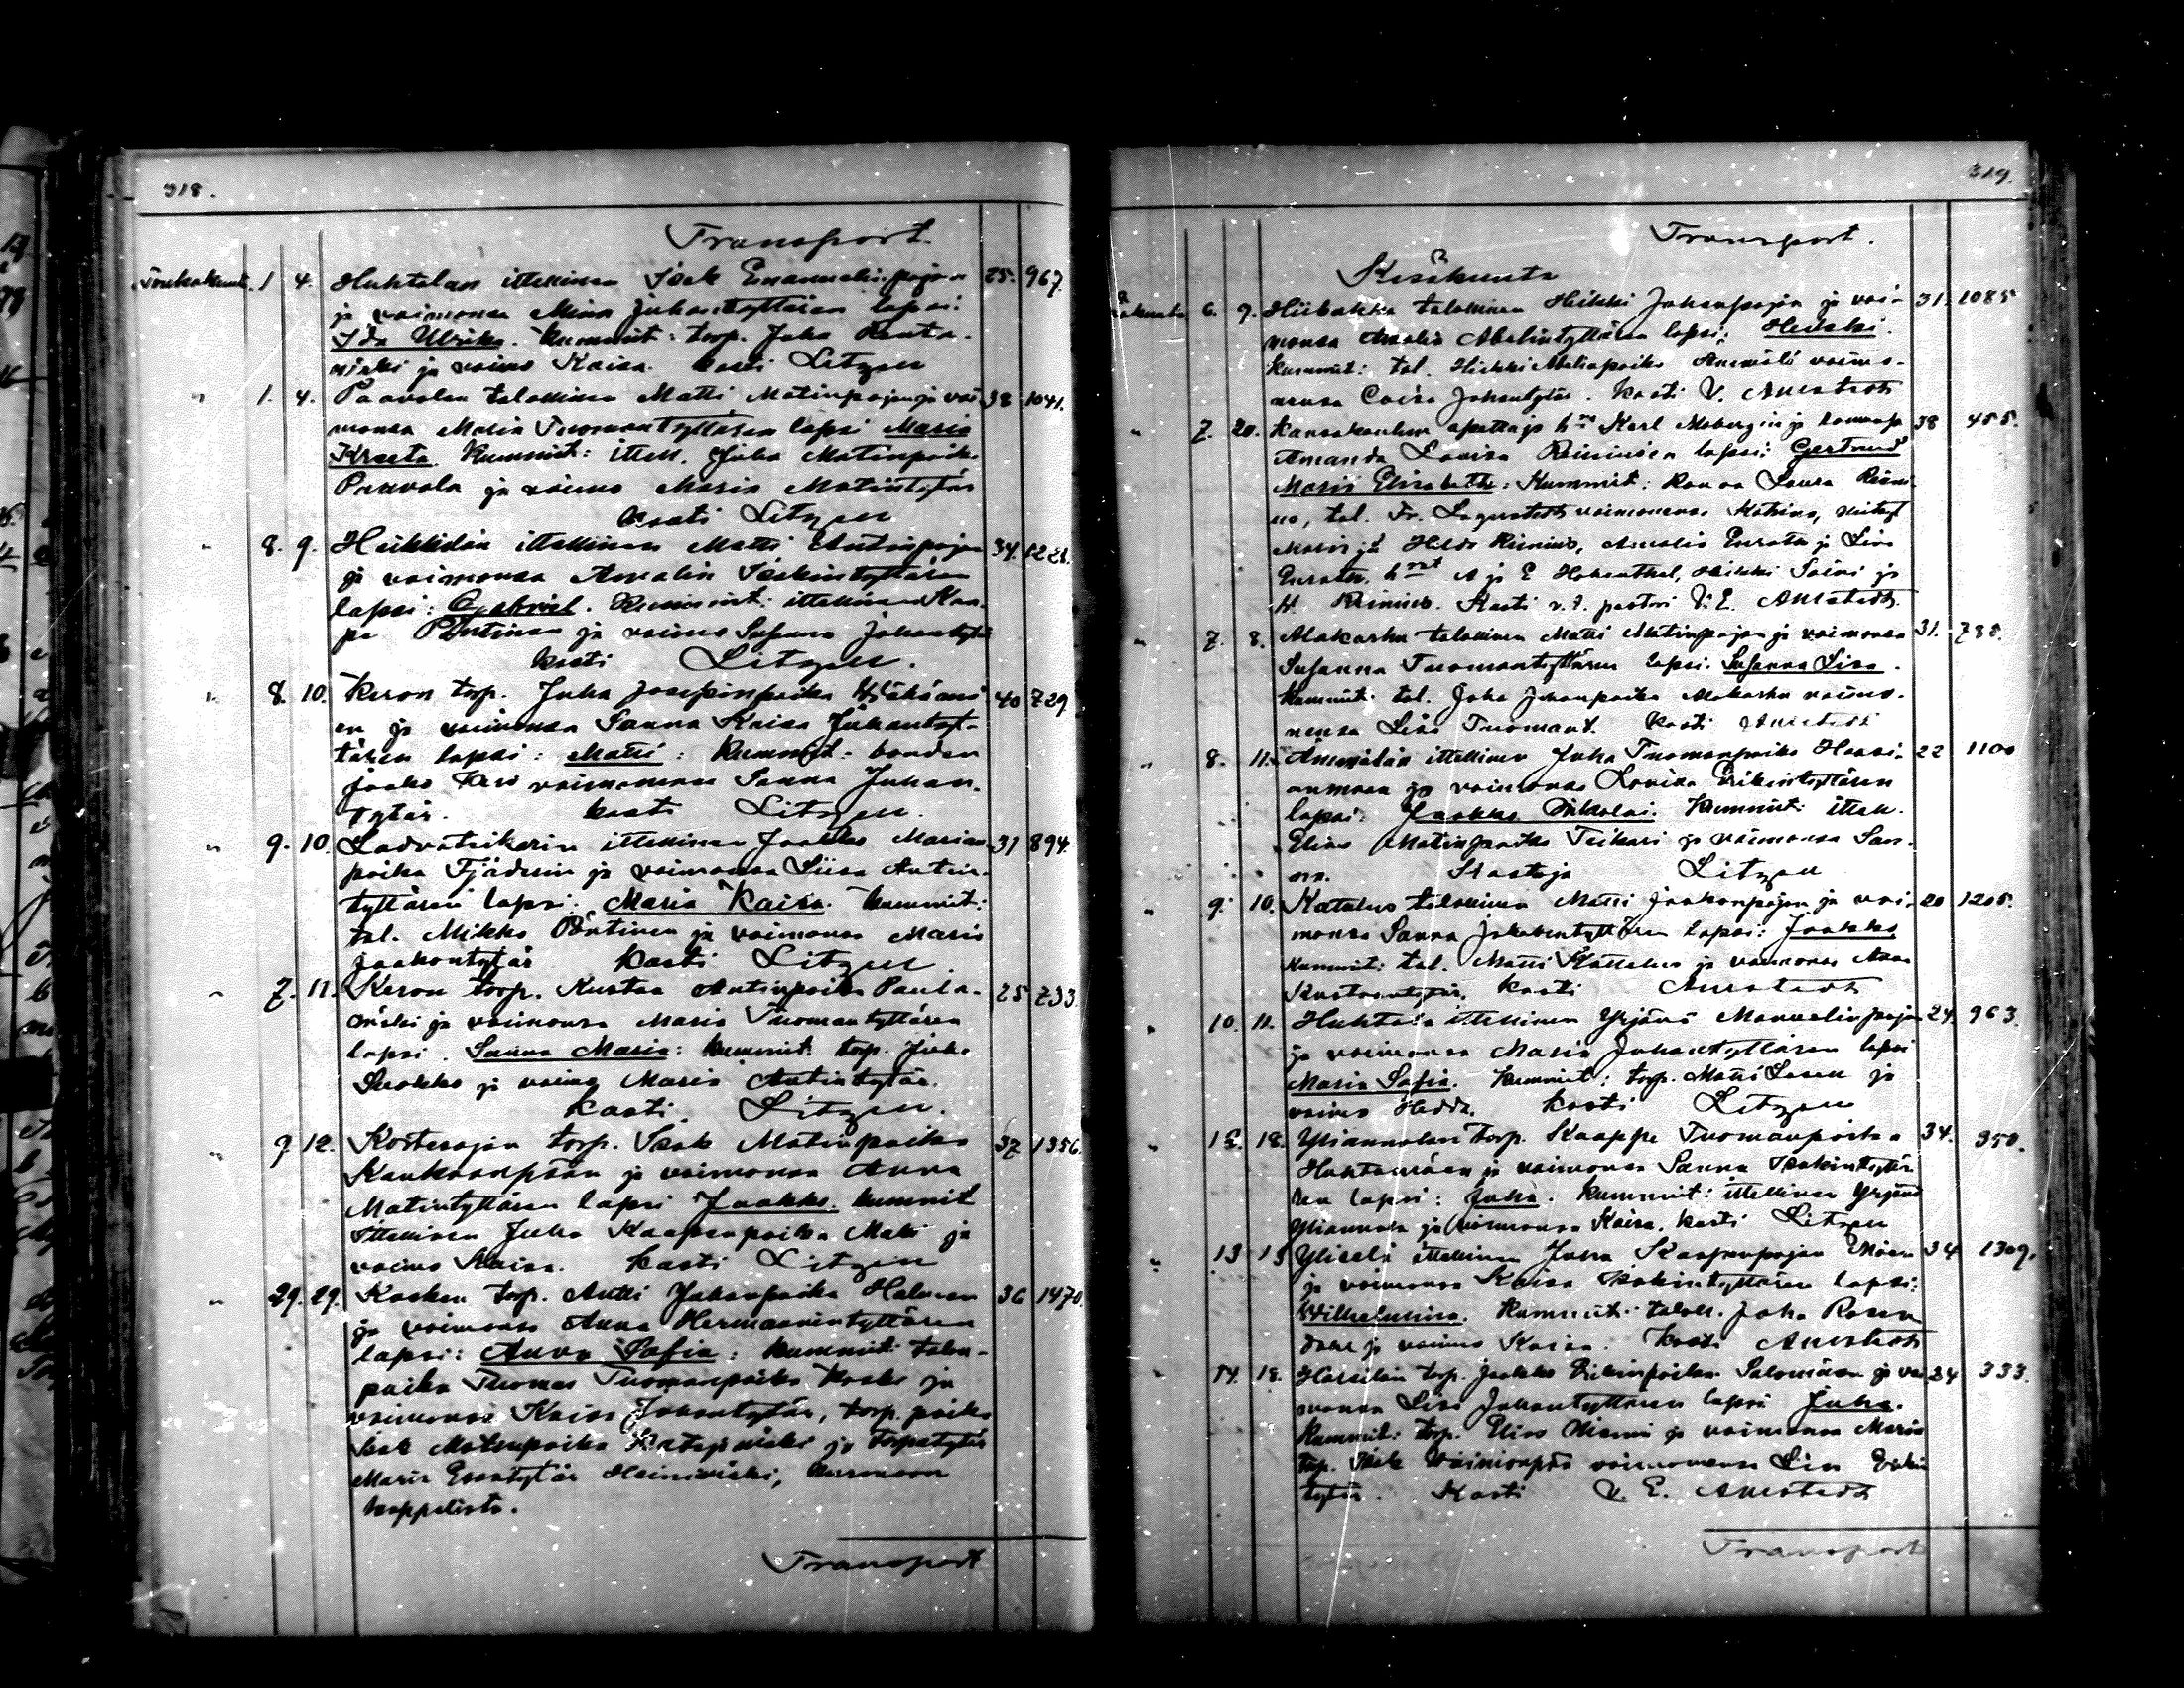 318.
Transport.
Toukokuut. 1 4. Huhtalan itellinen Isak Emanuelinpojan 25. 967.
ja vaimonsa Miina Juhantyttären lapsi:
Ida Ulrika. Kummit: torp. Juha Rauta-
mäki ja vaimo Kaisa. kasti Litzen
" 1. 4. Paavolan talollinen Matti Matinpojan ja vai- 38 1041.
monsa Maria Tuomantyttären lapsi Maria
Kreeta. Kummit: itell. Juha Matinpoika
Paavola ja vaimo Maria Matintytär
kasti Litzen
" 8. 9. Heikkilän itellinen Matti Antinpojan 34.
ja vaimonsa Amalia Isakintyttären
lapsi: Gabriel. Kummit: itellinen Kaa-
pe Pöntinen ja vaimo Susanna Johantytär
kasti Litzen.
" 8. 10. Keron torp. Juha Josepinpoika 40 729
en ja vaimonsa Sanna Kaisa Juhantyt-
tären lapsi: Matti: Kummit: bonden
Jaako Kero vaimonsa Sanna Juhan-
tytär. kasti Litzen.
" 9. 10. itellinen Jaakko Marian- 31 894.
poika Fjäderin ja vaimonsa Liisa Antin-
tyttären lapsi: Maria Kaisa. Kummit:
tal. Mikko Pöntinen ja vaimonsa Maria
Jaakontytär kasti Litzen.
" 7. 11. Keron torp. Kustaa Antinpoika Paula- 25 733.
mäki ja vaimonsa Maria Tuomantyttären
lapsi. Sanna Maria: kummit: torp. Juha
ja vaimo Maria Antintytär.
kasti Litzen.
" 9 12. torp. Isak Matinpoika 37 1356.
Kankaanpään ja vaimonsa Anna
Matintyttären lapsi Jaakko. kummit
Itellinen Juha Kaapenpoika Maki ja
vaimo Kaisa. kasti Litzen
" 29. 29. Kosken torp. Antti Juhanpoika Halmen 36 1470.
ja vaimonsa Anna Hermannintyttären
lapsi: Anna Sofia: kummit: talon-
poika Thomas Tuomanpoika Koski ja
vaimonsa Kaisa Johantytär, torp. poika
Isak Matinpoika ja torpatytär
Maria Heinimäki,
kappelista.
Transport
319.
Transport.
Kesäkuuta
6. 9. talollinen Heikki Juhanpojan ja vai- 31. 1085
monsa Amalia Abelintyttären lapsi: Heikki.
Kummit: tal. Heikki Matinpoika Ammälä vaimo-
nensa Caisa Johantytär. kasti V. Amstedt
" 7. 20. Kansakoulun opettaja hra Karl Mobergin ja rouvansa 38 455.
Amanda Lovisa Riinimön lapsi: Gertrud
Maria Elisabeth: Kummit: Rouva Laura Riini-
mö, tal. Fr. Lagerstedt vaimonensa Katrina, neityt
Maria ja Hilda Riinimö, Amalia Eurata ja Liisa
Eurata, hrat A ja E Hohenthal, Heikki Soini ja
H Riinimö. Kasti v.t. pastori V. E. Amstedt.
" 7. 8. Alakarhu talollinen Matti Matinpojan ja vaimonsa 31. 785.
Susanna Tuomantyttären lapsi. Susanna Liisa.
Kummit: tal. Juha Juhanpoika Alakarhu vaimo-
nensa Liisa Tuomant. kasti Amstedt
" 8. 11. Ammälän itellinen Juha Tuomanpoika Haavi- 22 1100
ja vaimonsa Lovisa Erikintyttären
lapsi: Jaakko Nikolai. Kummit: itell.
Elias Matinpoika Teikari ja vaimonsa San-
na. Kastoja Litzen
" 9. 10. Katalus talollinen Matti Jaakonpojan ja vai- 20 1205.
monsa Sanna Jakobintyttären lapsi: Jaakko
Kummit: tal. Matti Kattelus ja vaimonsa Anna
Kustaantytär. kasti Amstedt
" 10. 11. Huhtala itellinen Yrjänä Manuelinpojan 24. 963.
ja vaimonsa Maria Juhantyttären lapsi
Maria Sofia. Kummit: torp. Matti ja
vaimo Hedda. kasti Litzen
" 18. Yliannolan torp. Kaappe Tuomanpoika 34. 350.
Huhtamäen ja vaimonsa Sanna Isakintyttä-
ren lapsi: Juha. Kummit: itellinen Yrjänä
Yliannala ja vaimonsa Kaisa. kasti Litzen
" 13 15 Ylisela itellinen Juha Kaapenpojan 34 1309.
ja vaimonsa Kaisa Isakintyttären lapsi:
Wilhelmiina. Kummit: taloll. Juha Rosen-
dahl ja vaimo Kaisa. kasti Amstedt
14. 18. torp. Jaakko Erkinpoika Salomäen ja vai- 24 333.
monsa Liisa Juhantyttären lapsi Juha.
Kummit: torp. Elias Niemi ja vaimonsa Maria
torp. Isak Vainionpää vaimonensa Liisa Erkin
tytär. Kasti V. E. Amstedt
Transport